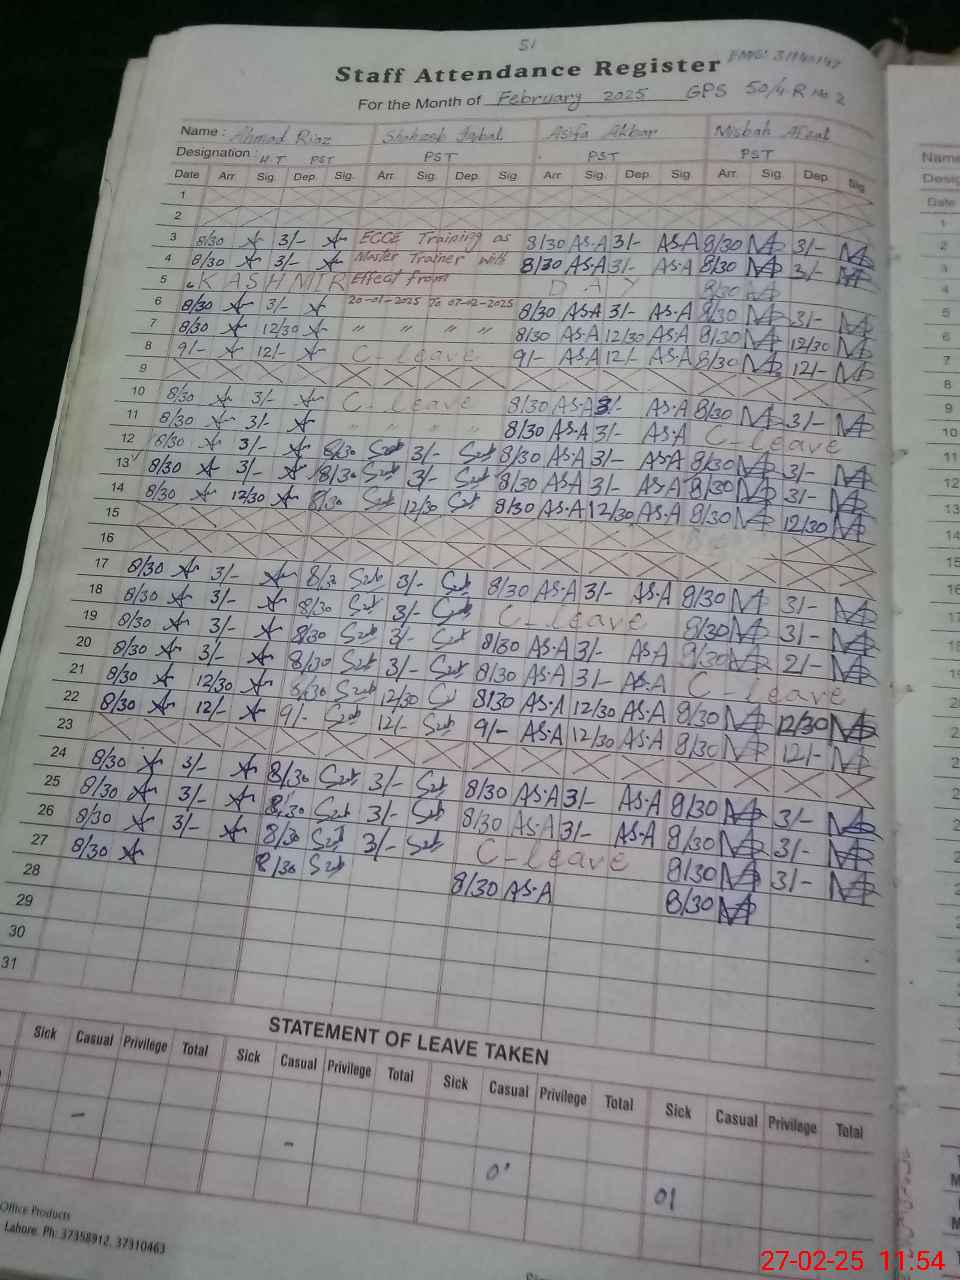 51
EMIS: 31140147
Staff Attendance Register
For the Month of February 2025 GPS 50/4-R No 2
Name : Ahmad Riaz Shahzeb Iqbal Asifa Akbar Misbah Afzal
Designation : H.T PST PST PST PST
Date Arr. Sig. Dep. Sig. Arr. Sig. Dep. Sig. Arr. Sig. Dep. Sig. Arr. Sig. Dep. Sig.
1
2
3 8/30 3/- ECCE Training as 8/30 AS.A 3/- AS.A 8/30 3/-
4 8/30 3/- Master Trainer with 8/30 AS.A 3/- AS.A 8/30 3/-
5 KASHMIR Effect from DAY 8/30
6 8/30 3/- 20-01-2025 To 07-02-2025 8/30 AS.A 3/- AS.A 8/30 3/-
7 8/30 12/30 〃 〃 〃 〃 8/30 AS.A 12/30 AS.A 8/30 12/30
8 9/- 12/- C-leave 9/- AS.A 12/- AS.A 8/30 12/-
9
10 8/30 3/- C-leave 8/30 AS.A 3/- AS.A 8/30 3/-
11 8/30 3/- 〃 〃 〃 〃 8/30 AS.A 3/- AS.A C-leave
12 8/30 3/- 8/30 3/- 8/30 AS.A 3/- AS.A 8/30 3/-
13 8/30 3/- 8/30 3/- 8/30 AS.A 3/- AS.A 8/30 3/-
14 8/30 12/30 8/30 12/30 8/30 AS.A 12/30 AS.A 8/30 12/30
15
16
17 8/30 3/- 8/30 3/- 8/30 AS.A 3/- AS.A 8/30 3/-
18 8/30 3/- 8/30 3/- C-leave 8/30 3/-
19 8/30 3/- 8/30 3/- 8/30 AS.A 3/- AS.A 8/30 2/-
20 8/30 3/- 8/30 3/- 8/30 AS.A 3/- AS.A C-leave
21 8/30 12/30 8/30 12/30 8/30 AS.A 12/30 AS.A 8/30 12/30
22 8/30 12/- 9/- 12/- 9/- AS.A 12/30 AS.A 8/30 12/-
23
24 8/30 3/- 8/30 3/- 8/30 AS.A 3/- AS.A 8/30 3/-
25 8/30 3/- 8/30 3/- 8/30 AS.A 3/- AS.A 8/30 3/-
26 8/30 3/- 8/30 3/- C-leave 8/30 3/-
27 8/30 8/30 8/30 AS.A 8/30
28
29
30
31
STATEMENT OF LEAVE TAKEN
Sick Casual Privilege Total Sick Casual Privilege Total Sick Casual Privilege Total Sick Casual Privilege Total
- - 01
Office Products
Lahore. Ph: 37358912, 37310463
27-02-25 11:54